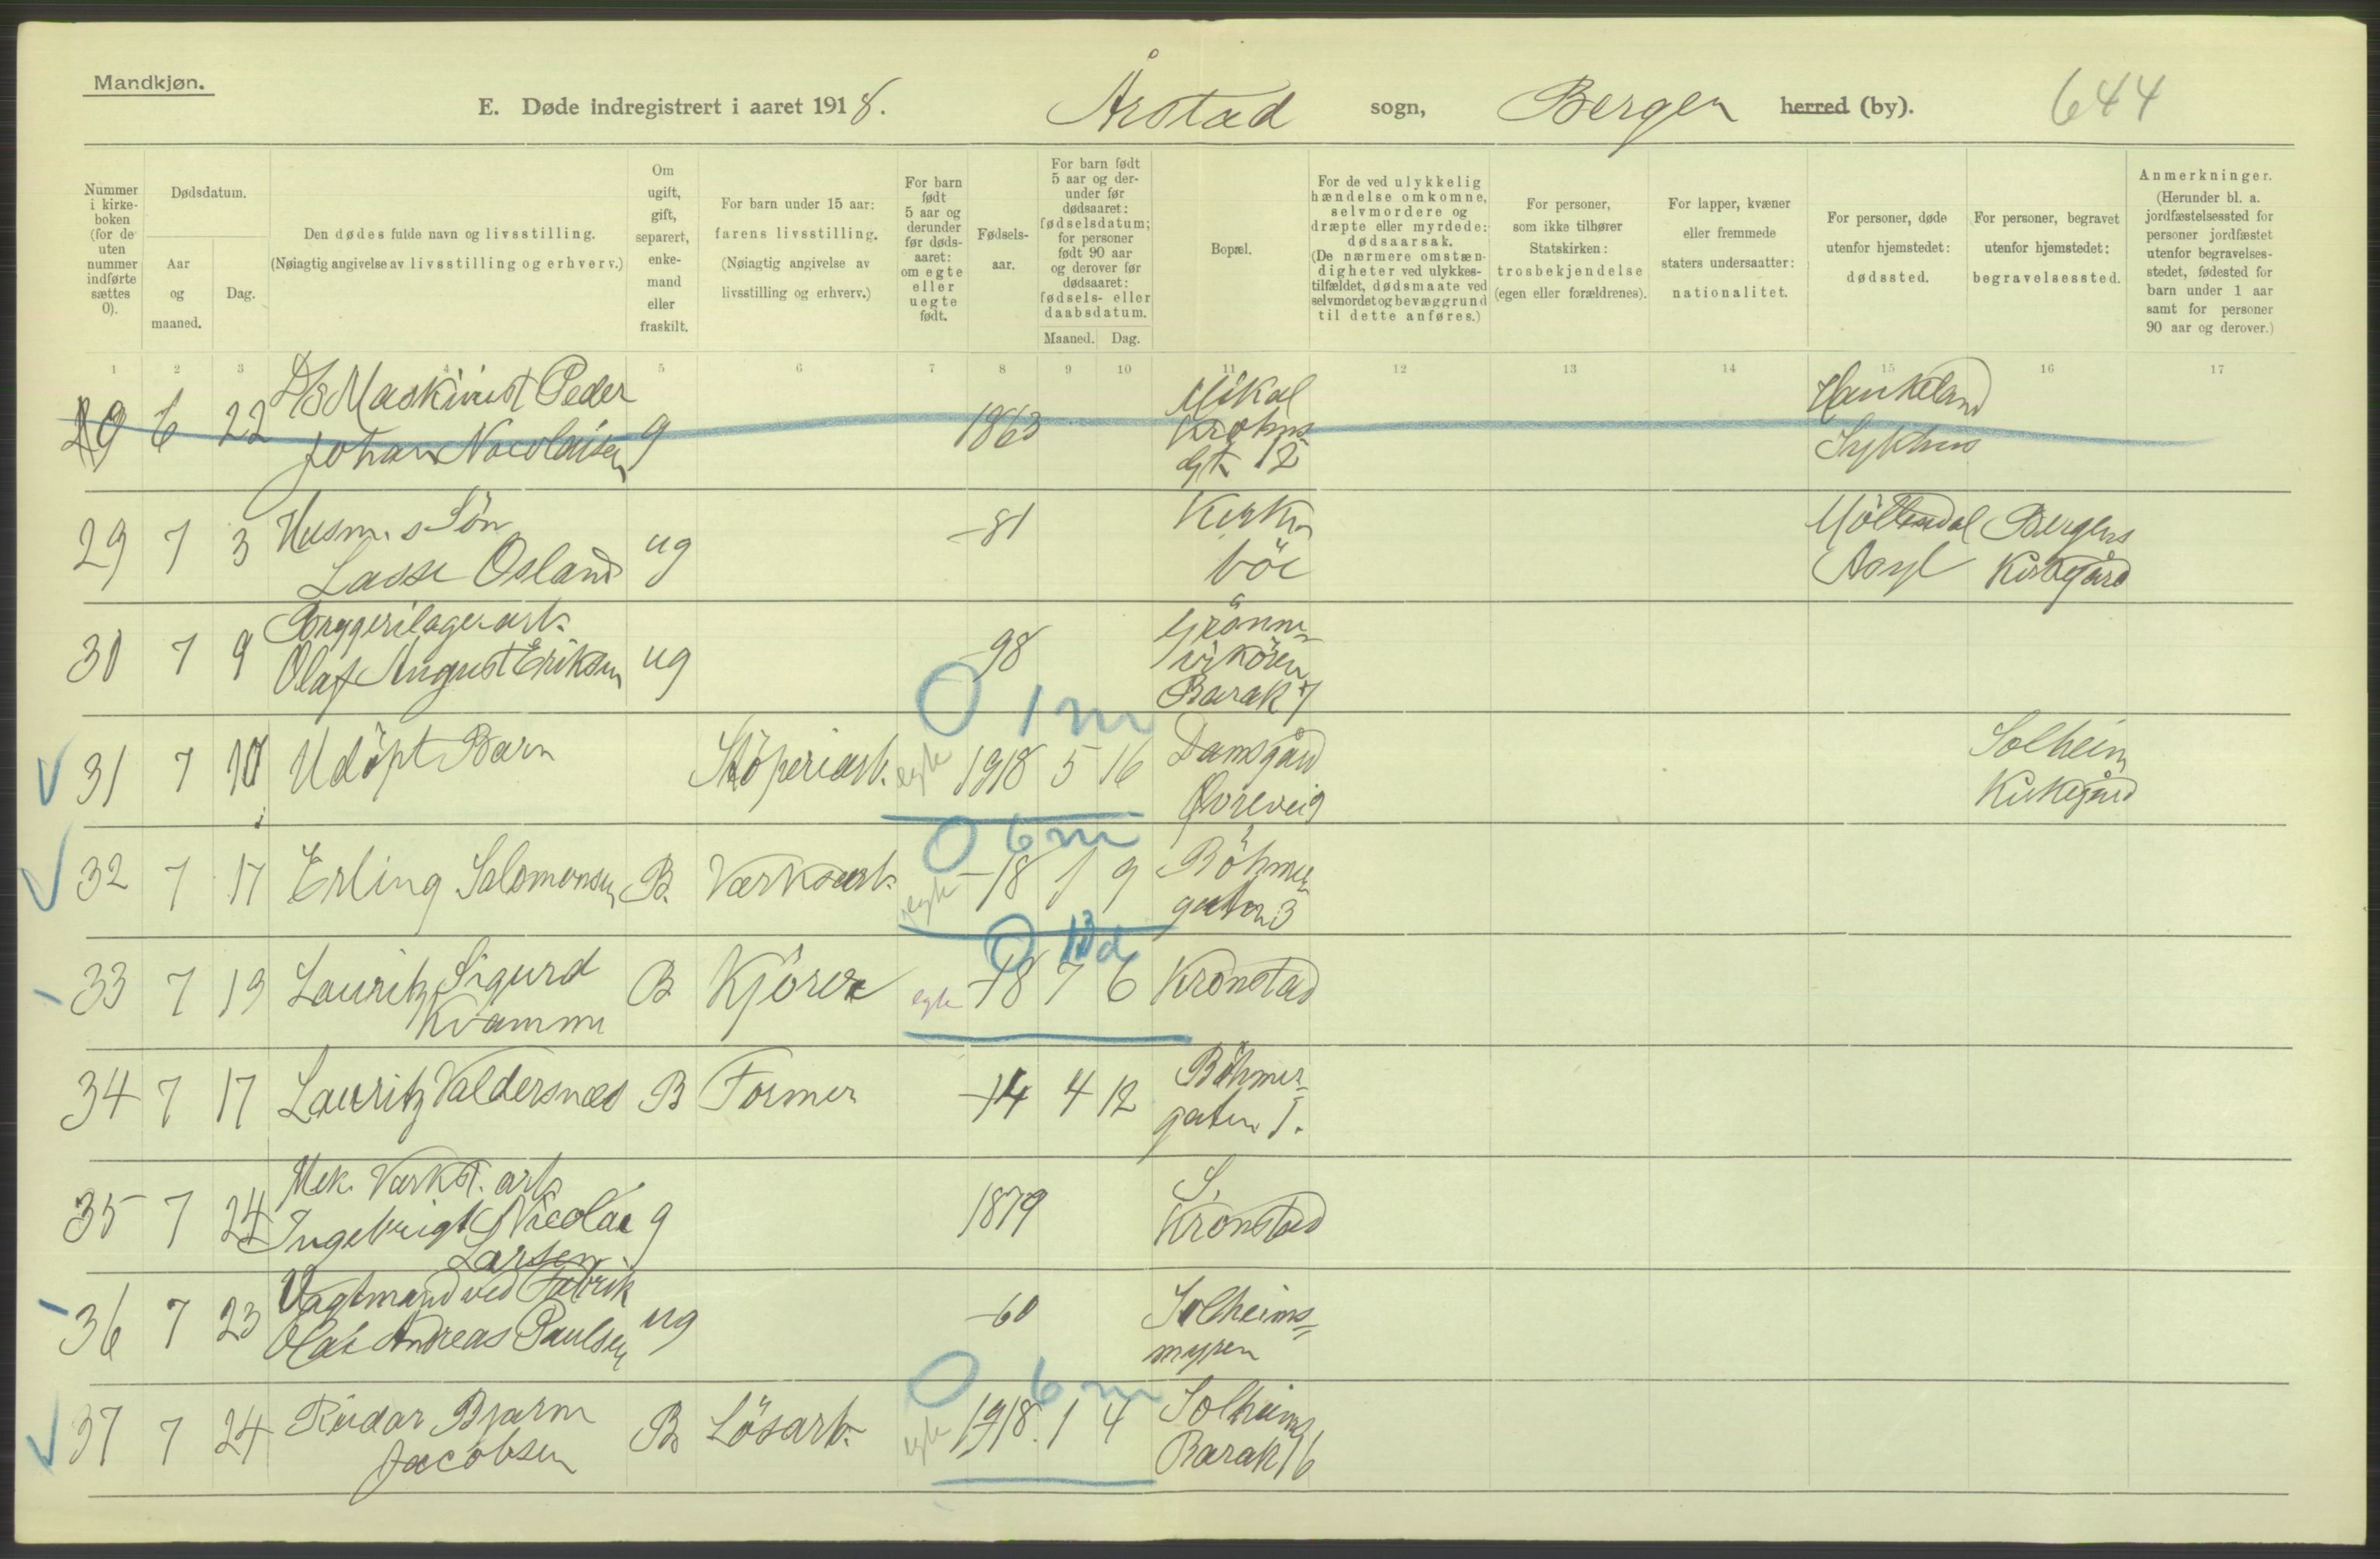 Mandkjøn.
E. Døde indregistrert i aaret 1918. Årstad sogn, Bergen herred (by). 644
Nummer i kirke-boken (for de uten nummer indførte sættes 0).
Dødsdatum.
Aar og maaned.
Dag.
Den dødes fulde navn og livsstilling.
(Nøiagtig angivelse av livsstilling og erhverv.)
Om ugift, gift, separert, enke-mand eller fraskilt.
For barn under 15 aar: farens livsstilling.
(Nøiagtig angivelse av livsstilling og erhverv.)
For barn født 5 aar og derunder før døds-aaret: om egte eller uegte født.
Fødsels-aar.
For barn født 5 aar og der-under før dødsaaret: fødselsdatum; for personer født 90 aar og derover før dødsaaret: fødsels- eller daabsdatum.
Maaned. Dag.
Bopæl.
For de ved ulykkelig hændelse omkomne, selvmordere og dræpte eller myrdede: dødsaarsak.
(De nærmere omstæn-digheter ved ulykkes-tilfældet, dødsmaate ved selvmordet og bevæggrund til dette anføres.)
For personer, som ikke tilhører Statskirken: trosbekjendelse (egen eller forældrenes).
For lapper, kvæner eller fremmede staters undersaatter: nationalitet.
For personer, døde utenfor hjemstedet: dødssted.
For personer, begravet utenfor hjemstedet: begravelsessted.
Anmerkninger.
(Herunder bl. a. jordfæstelsessted for personer jordfæstet utenfor begravelses-stedet, fødested for barn under 1 aar samt for personer 90 aar og derover.)
1 2 3 4 5 6 7 8 9 10 11 12 13 14 15 16 17
29 6 22 D/S Maskinist Peder
Johan Nicolaisen g 1863 Mikal
Krohns
Gt 12 Haukeland
Sykhus
29 7 3 Husm. s Søn
Lasse Osland ug -81 Kirke
böe Möllendal
Asyl Bergens
Kirkegård
30 7 9 Bryggerilagerarb.
Olaf August Eriksen ug -98 Grönne
vikören
Barak 7
0 1 m
31 7 10 Udöpt Barn Stöperiarb. egte 1918 5 16 Damsgård
Øvrevei 9 Solheim
Kirkegård
0 6 m
32 7 17 Erling Salomonsen B. Værksarb. egte -18 1 9 Böhmer
gaten 3
0 13 d
33 7 19 Lauritz Sigurd
Kvamme B Kjörer egte -18 7 6 Kronstad
34 7 17 Lauritz Valdersnæs B Former -14 4 12 Böhmer=
gaten 1.
35 7 24 Mek. Værkst. arb.
Ingebrigt Nicolai
Larsen g 1879 S.
Kronstad
36 7 23 Vagtmand ved Fabrik
Olai Andreas Paulsen ug -60 Solheims=
myren
0 6 m
37 7 24 Reidar Bjarne
Jacobsen B Lösarb. egte 1918. 1 4 Solheims
Barak 16